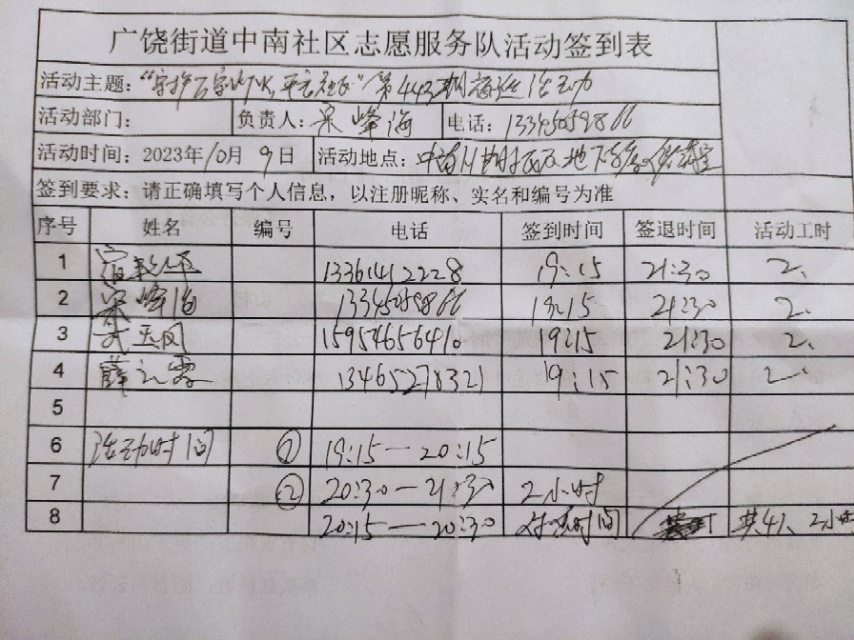 广饶街道中南社区志愿服务队活动签到表
活动主题: 第443期 活动
活动部门: 负责人: 宋峰海 电话: 13345059866
活动时间: 2023年10月9日 活动地点: 中南 地下
签到要求: 请正确填写个人信息，以注册昵称、实名和编号为准
序号 姓名 编号 电话 签到时间 签退时间 活动工时
1 13361412228 19:15 21:30 2.
2 宋峰海 13345059866 19:15 21:30 2.
3 玉凤 15954656410 19:15 21:30 2.
4 薛 霞 13465278321 19:15 21:30 2.
5
6 活动时间 ① 19:15—20:15
7 ② 20:30—21:30 2小时
8 20:15—20:30 时间 共4人 2小时